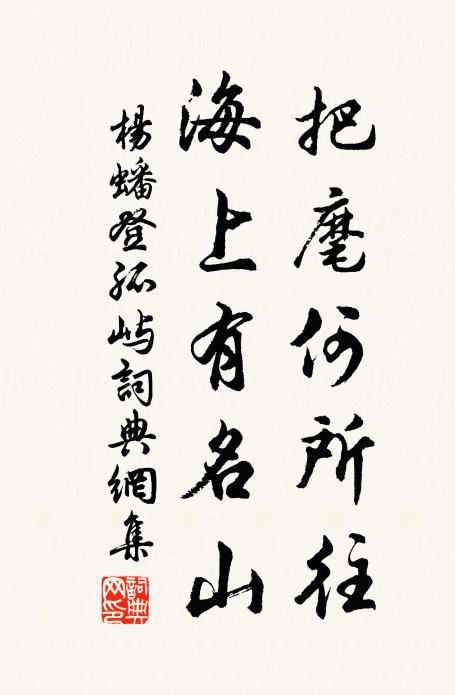 把麾何所往
海上有名山
楊蟠登孤嶼詞典網集
詞典网印